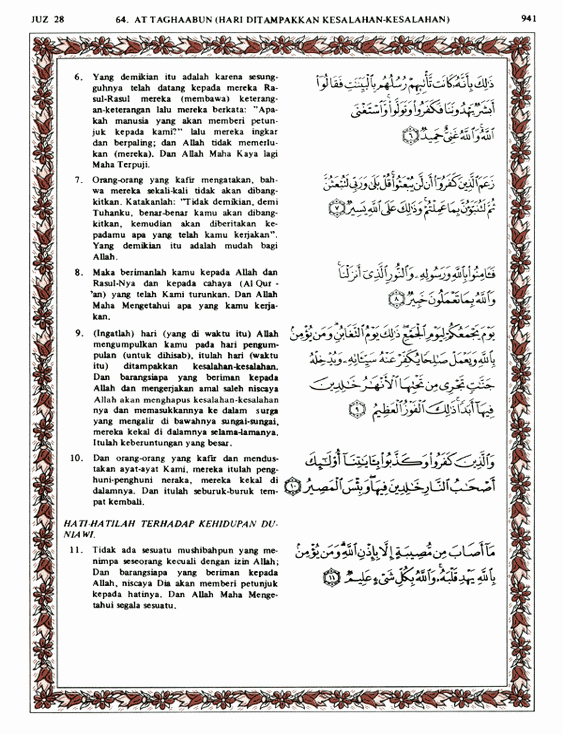 JUZ 28 64. AT TAGHAABUN (HARI DITAMPAKKAN KESALAHAN-KESALAHAN) 941
6. Yang demikian itu adalah karena sesung-
guhnya telah datang kepada mereka Ra-
sul-Rasul mereka (membawa) keterang-
an-keterangan lalu mereka berkata: "Apa-
kah manusia yang akan memberi petun-
juk kepada kami?" lalu mereka ingkar
dan berpaling; dan Allah tidak memerlu-
kan (mereka). Dan Allah Maha Kaya lagi
Maha Terpuji.
ذَٰلِكَ بِأَنَّهُۥ كَانَت تَّأْتِيهِمْ رُسُلُهُم بِالْبَيِّنَٰتِ فَقَالُوٓا۟
أَبَشَرٌ يَهْدُونَنَا فَكَفَرُوا۟ وَتَوَلَّوا۟ ۚ وَّاسْتَغْنَى
اللَّهُ ۚ وَاللَّهُ غَنِىٌّ حَمِيدٌ ٦
7. Orang-orang yang kafir mengatakan, bah-
wa mereka sekali-kali tidak akan dibang-
kitkan. Katakanlah: "Tidak demikian, demi
Tuhanku, benar-benar kamu akan dibang-
kitkan, kemudian akan diberitakan ke-
padamu apa yang telah kamu kerjakan".
Yang demikian itu adalah mudah bagi
Allah.
زَعَمَ الَّذِينَ كَفَرُوٓا۟ أَن لَّن يُبْعَثُوا۟ ۚ قُلْ بَلَىٰ وَرَبِّى لَتُبْعَثُنَّ
ثُمَّ لَتُنَبَّؤُنَّ بِمَا عَمِلْتُمْ ۚ وَذَٰلِكَ عَلَى اللَّهِ يَسِيرٌ ٧
8. Maka berimanlah kamu kepada Allah dan
Rasul-Nya dan kepada cahaya (Al Qur -
'an) yang telah Kami turunkan. Dan Allah
Maha Mengetahui apa yang kamu kerja-
kan.
فَـَٔامِنُوا۟ بِاللَّهِ وَرَسُولِهِۦ وَالنُّورِ الَّذِىٓ أَنزَلْنَا ۚ
وَاللَّهُ بِمَا تَعْمَلُونَ خَبِيرٌ ٨
9. (Ingatlah) hari (yang di waktu itu) Allah
mengumpulkan kamu pada hari pengum-
pulan (untuk dihisab), itulah hari (waktu
itu) ditampakkan kesalahan-kesalahan.
Dan barangsiapa yang beriman kepada
Allah dan mengerjakan amal saleh niscaya
Allah akan menghapus kesalahan-kesalahan
nya dan memasukkannya ke dalam surga
yang mengalir di bawahnya sungai-sungai,
mereka kekal di dalamnya selama-lamanya.
Itulah keberuntungan yang besar.
يَوْمَ يَجْمَعُكُمْ لِيَوْمِ الْجَمْعِ ۖ ذَٰلِكَ يَوْمُ التَّغَابُنِ ۗ وَمَن يُؤْمِنۢ
بِاللَّهِ وَيَعْمَلْ صَٰلِحًا يُكَفِّرْ عَنْهُ سَيِّـَٔاتِهِۦ وَيُدْخِلْهُ
جَنَّٰتٍ تَجْرِى مِن تَحْتِهَا الْأَنْهَٰرُ خَٰلِدِينَ
فِيهَآ أَبَدًا ۚ ذَٰلِكَ الْفَوْزُ الْعَظِيمُ ٩
10. Dan orang-orang yang kafir dan mendus-
takan ayat-ayat Kami, mereka itulah peng-
huni-penghuni neraka, mereka kekal di
dalamnya. Dan itulah seburuk-buruk tem-
pat kembali.
وَالَّذِينَ كَفَرُوا۟ وَكَذَّبُوا۟ بِـَٔايَٰتِنَآ أُو۟لَٰٓئِكَ
أَصْحَٰبُ النَّارِ خَٰلِدِينَ فِيهَا ۖ وَبِئْسَ الْمَصِيرُ ١٠
HATI-HATILAH TERHADAP KEHIDUPAN DU-
NIAWI.
11. Tidak ada sesuatu mushibahpun yang me-
nimpa seseorang kecuali dengan izin Allah;
Dan barangsiapa yang beriman kepada
Allah, niscaya Dia akan memberi petunjuk
kepada hatinya. Dan Allah Maha Menge-
tahui segala sesuatu.
مَآ أَصَابَ مِن مُّصِيبَةٍ إِلَّا بِإِذْنِ اللَّهِ ۗ وَمَن يُؤْمِنۢ
بِاللَّهِ يَهْدِ قَلْبَهُۥ ۚ وَاللَّهُ بِكُلِّ شَىْءٍ عَلِيمٌ ١١